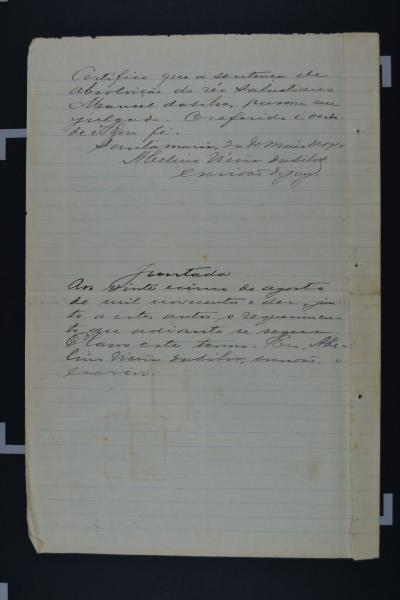 Certifico que a sentença de
absolvição do réo Salustiano
Manuel da Silva, passou em
julgado. O referido é verda-
de e dou fé.
Santa Maria, 20 de Maio de 1910
Vieira da Silva
escrivão do jury
Juntada
Aos vinte e cinco de agosto
de mil novecentos e dez, jun-
to a estes autos o requerimen-
to que adiante se segue.
E lavro este termo. Eu,
Vieira da Silva, escrivão, o
escrevi.